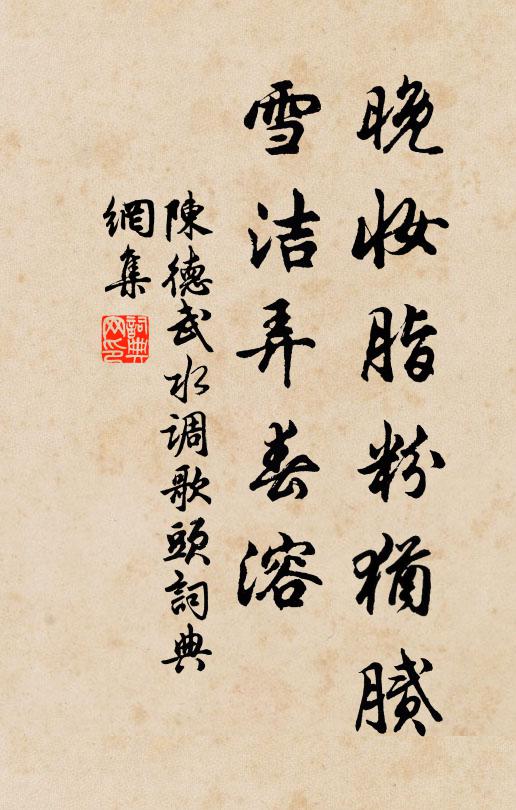 晚妆脂粉猶膩
雪洁弄春溶
陳德武水调歌頭詞典
網集
詞典网印